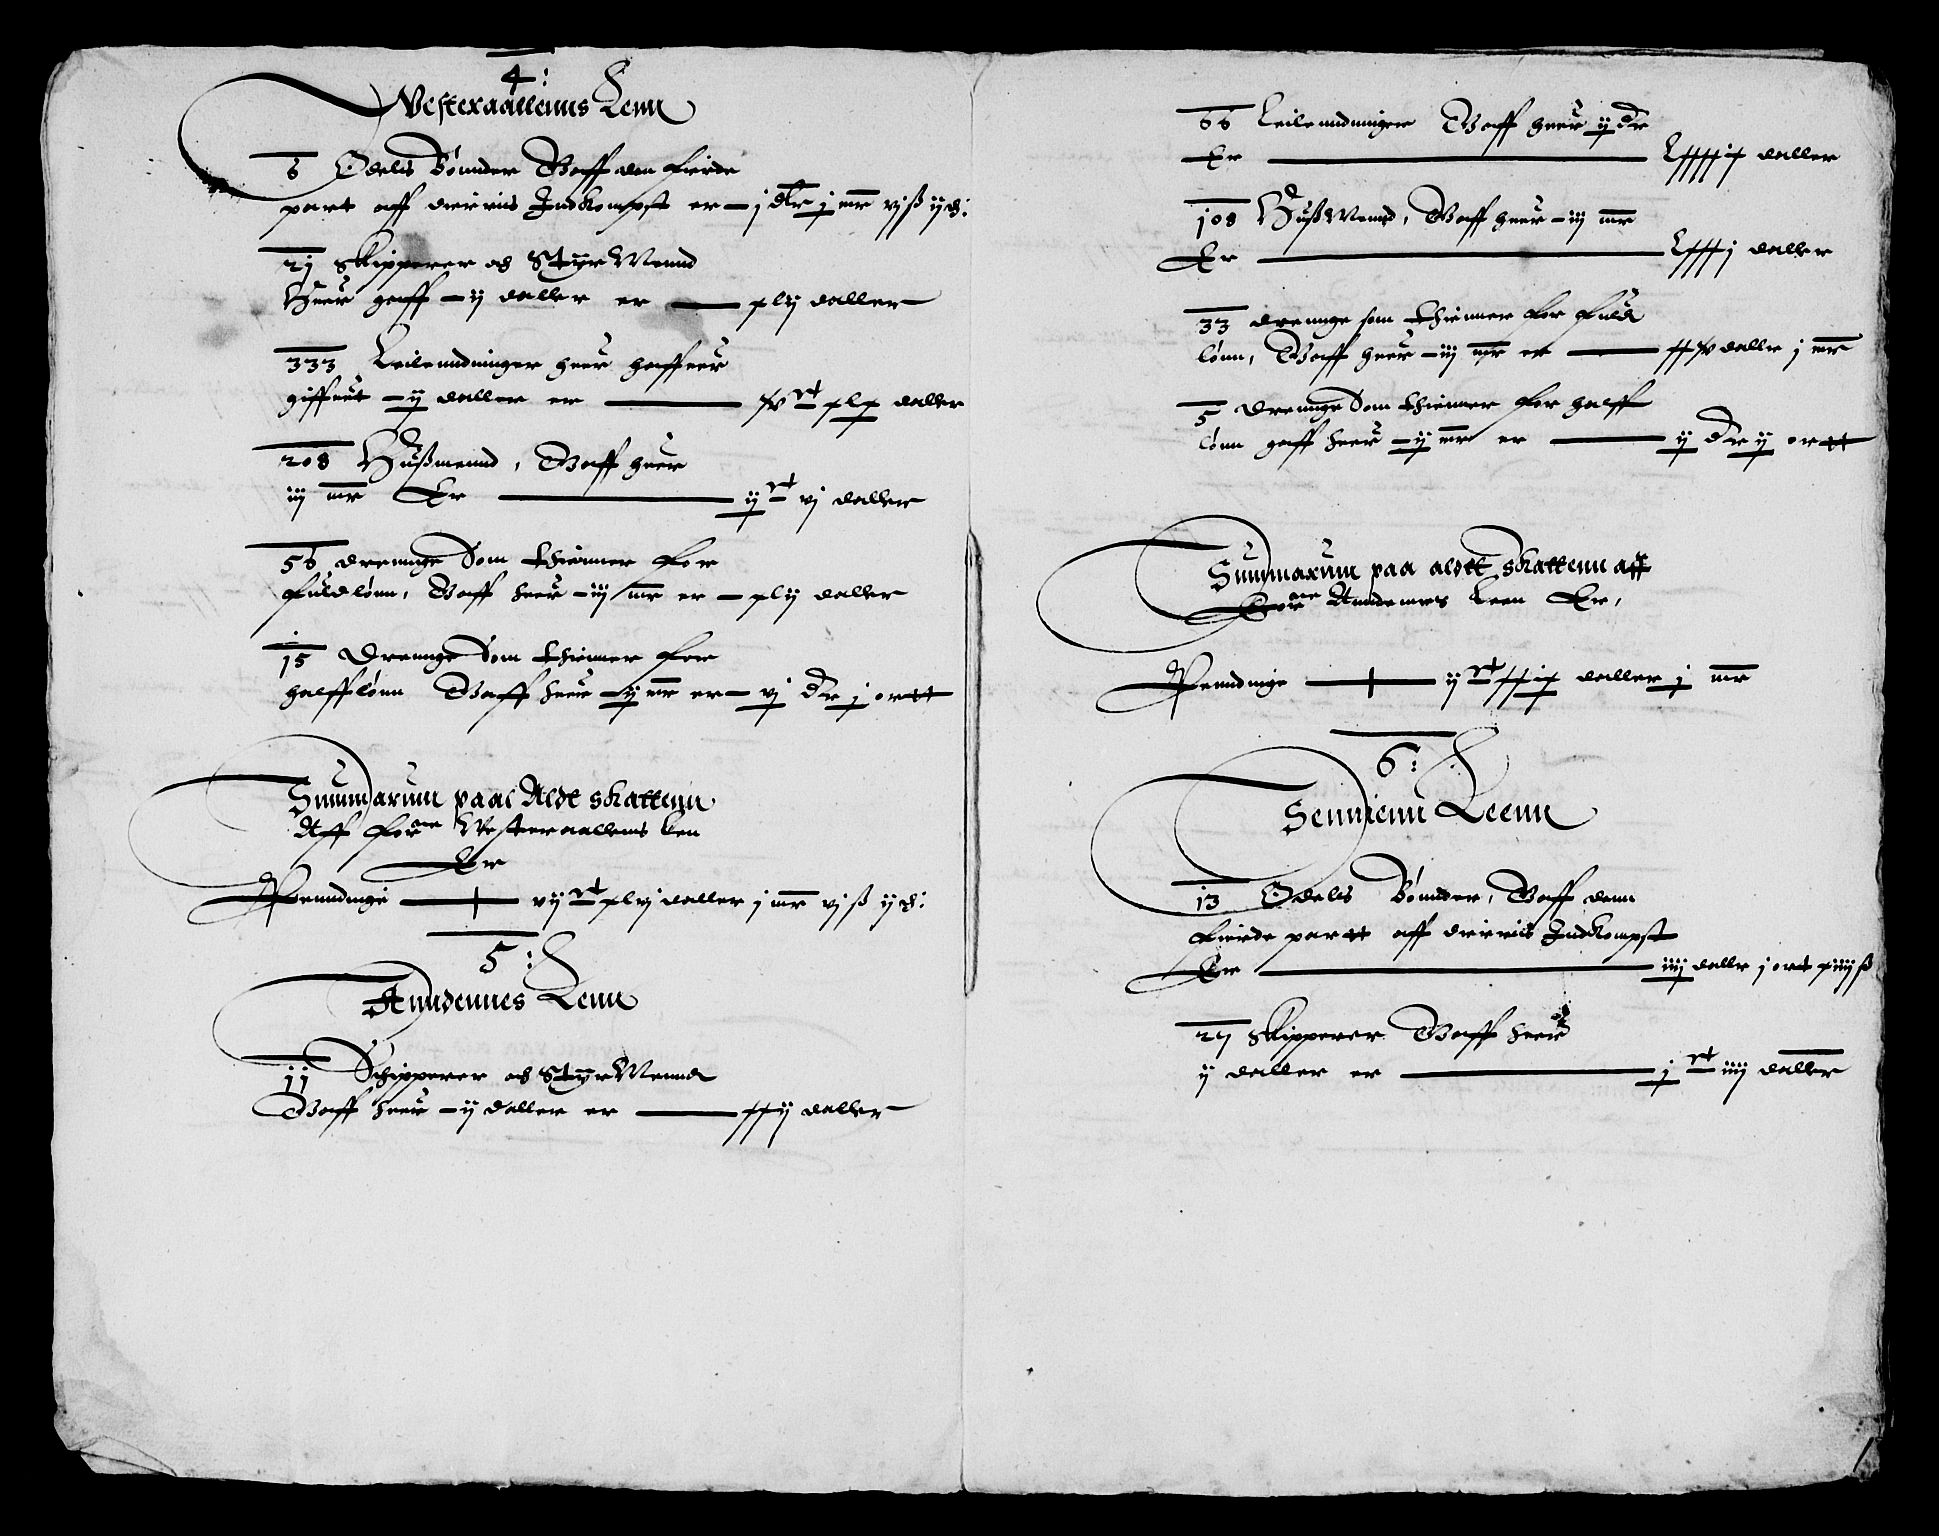 4:
Vesteraallenns Lenn
6 Odels Bønnder Gaff den fierde
part aff dierris Indkompst er – j dlr j mr vj ß ij d:
21 Skipperer och StyrMennd
Huer gaff – ij daller er — xlij daller
333 Leilenndinger huer haffuer
giffuit – ij daller er — vj daller
208 Hußmennd, Gaff huer
iij mr Er — ij vj daller
56 drennge Som thienner for
fuldlønn, Gaff huer – iij mr er – xlij daller
15 Drennge Som thienner for
halfflønn Gaff huer – ij mr er – vj dlr j ortt
Summarum paa Aldt skattenn
Aff forne Vesteraallens Len
Er
Penndinge — vij xlvj daller j mr vj ß ij d:
5:
Anndennes Lenn
11 Schipperer och StyrMennd
Gaff huer – ij daller er — xxij daller
66 Leilenndinger Gaff huer ij dlr
Er — daller
108 HußMennd, Gaff huer – iij mr
Er — Lxxxj daller
33 drennge som thienner for fuld
lønn, Gaff huer – iij mr er — daller j mr
5 drennge Som thienner for halff
lønn gaff huer – ij mr er — ij dlr ij ortt
Summarum paa aldt skattenn aff
Forne Anndennes Leen Er,
Penndinge — ij daller j mr
6:
Sennienn Leenn
13 Odels Bønnder, Gaff denn
fierde partt aff dierris Indkompst
Er — iiij daller j ort xiiij ß
27 Skipperer Gaff huer
ij daller er — j iiij daller